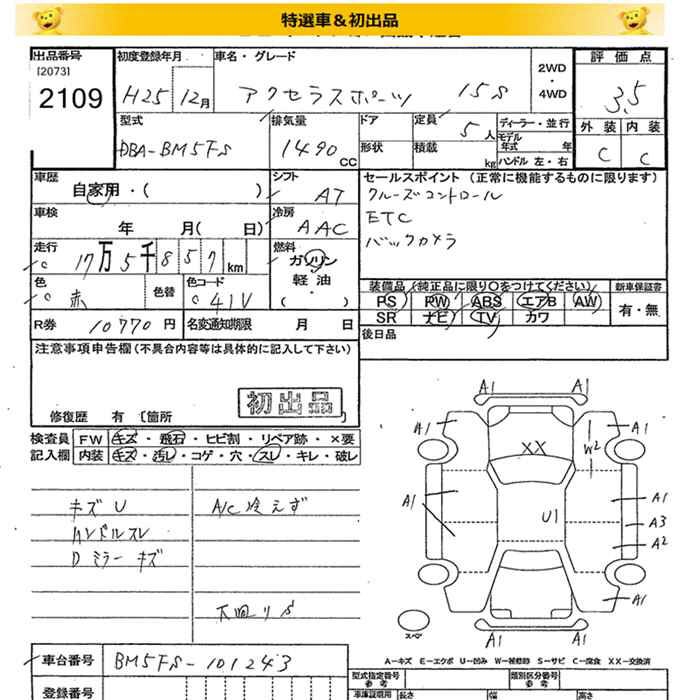 特選車＆初出品
出品番号 初度登録年月 車名・グレード 2WD・4WD 評価点
[2073]
2109 H25 12月 アクセラスポーツ 15S 3.5
型式 排気量 ドア 定員 5人 ディーラー・並行 外装 内装
DBA-BM5FS 1490cc 形状 積載 kg モデル年式 年 ハンドル左・右 C C
車歴 自家用・( ) シフト AT セールスポイント (正常に機能するものに限ります)
クルーズコントロール
車検 年 月( 日) 冷房 AAC ETC
バックカメラ
走行 c 17万5千857km 燃料 ガソリン・軽油・( )
色 c 赤 色替 色コード c 41V 装備品 (純正品に限り○をつけてください) 新車保証書
PS PW ABS エアB AW 有・無
SR ナビ TV カワ
R券 10770円 名変通知期限 月 日 後日品
注意事項申告欄(不具合内容等は具体的に記入して下さい)
初出品
修復歴 有 [箇所 ]
検査員 FW キズ・飛石・ヒビ割・リペア跡・×要
記入欄 内装 キズ・汚レ・コゲ・穴・スレ・キレ・破レ
キズ U A/C 冷えず
ハンドルスレ
Dミラーキズ
下廻りS
A1 A1
A1 A1
W2
XX
A1 A1
U1 A3
A2
A1
A1 A1
スペア
A—キズ E—エクボ U—凹み W—補修跡 S—サビ C—腐食 XX—交換済
車台番号 BM5FS-101243
登録番号
型式指定番号 参考 類別区分番号 参考
車庫証明用 長さ 幅 高さ